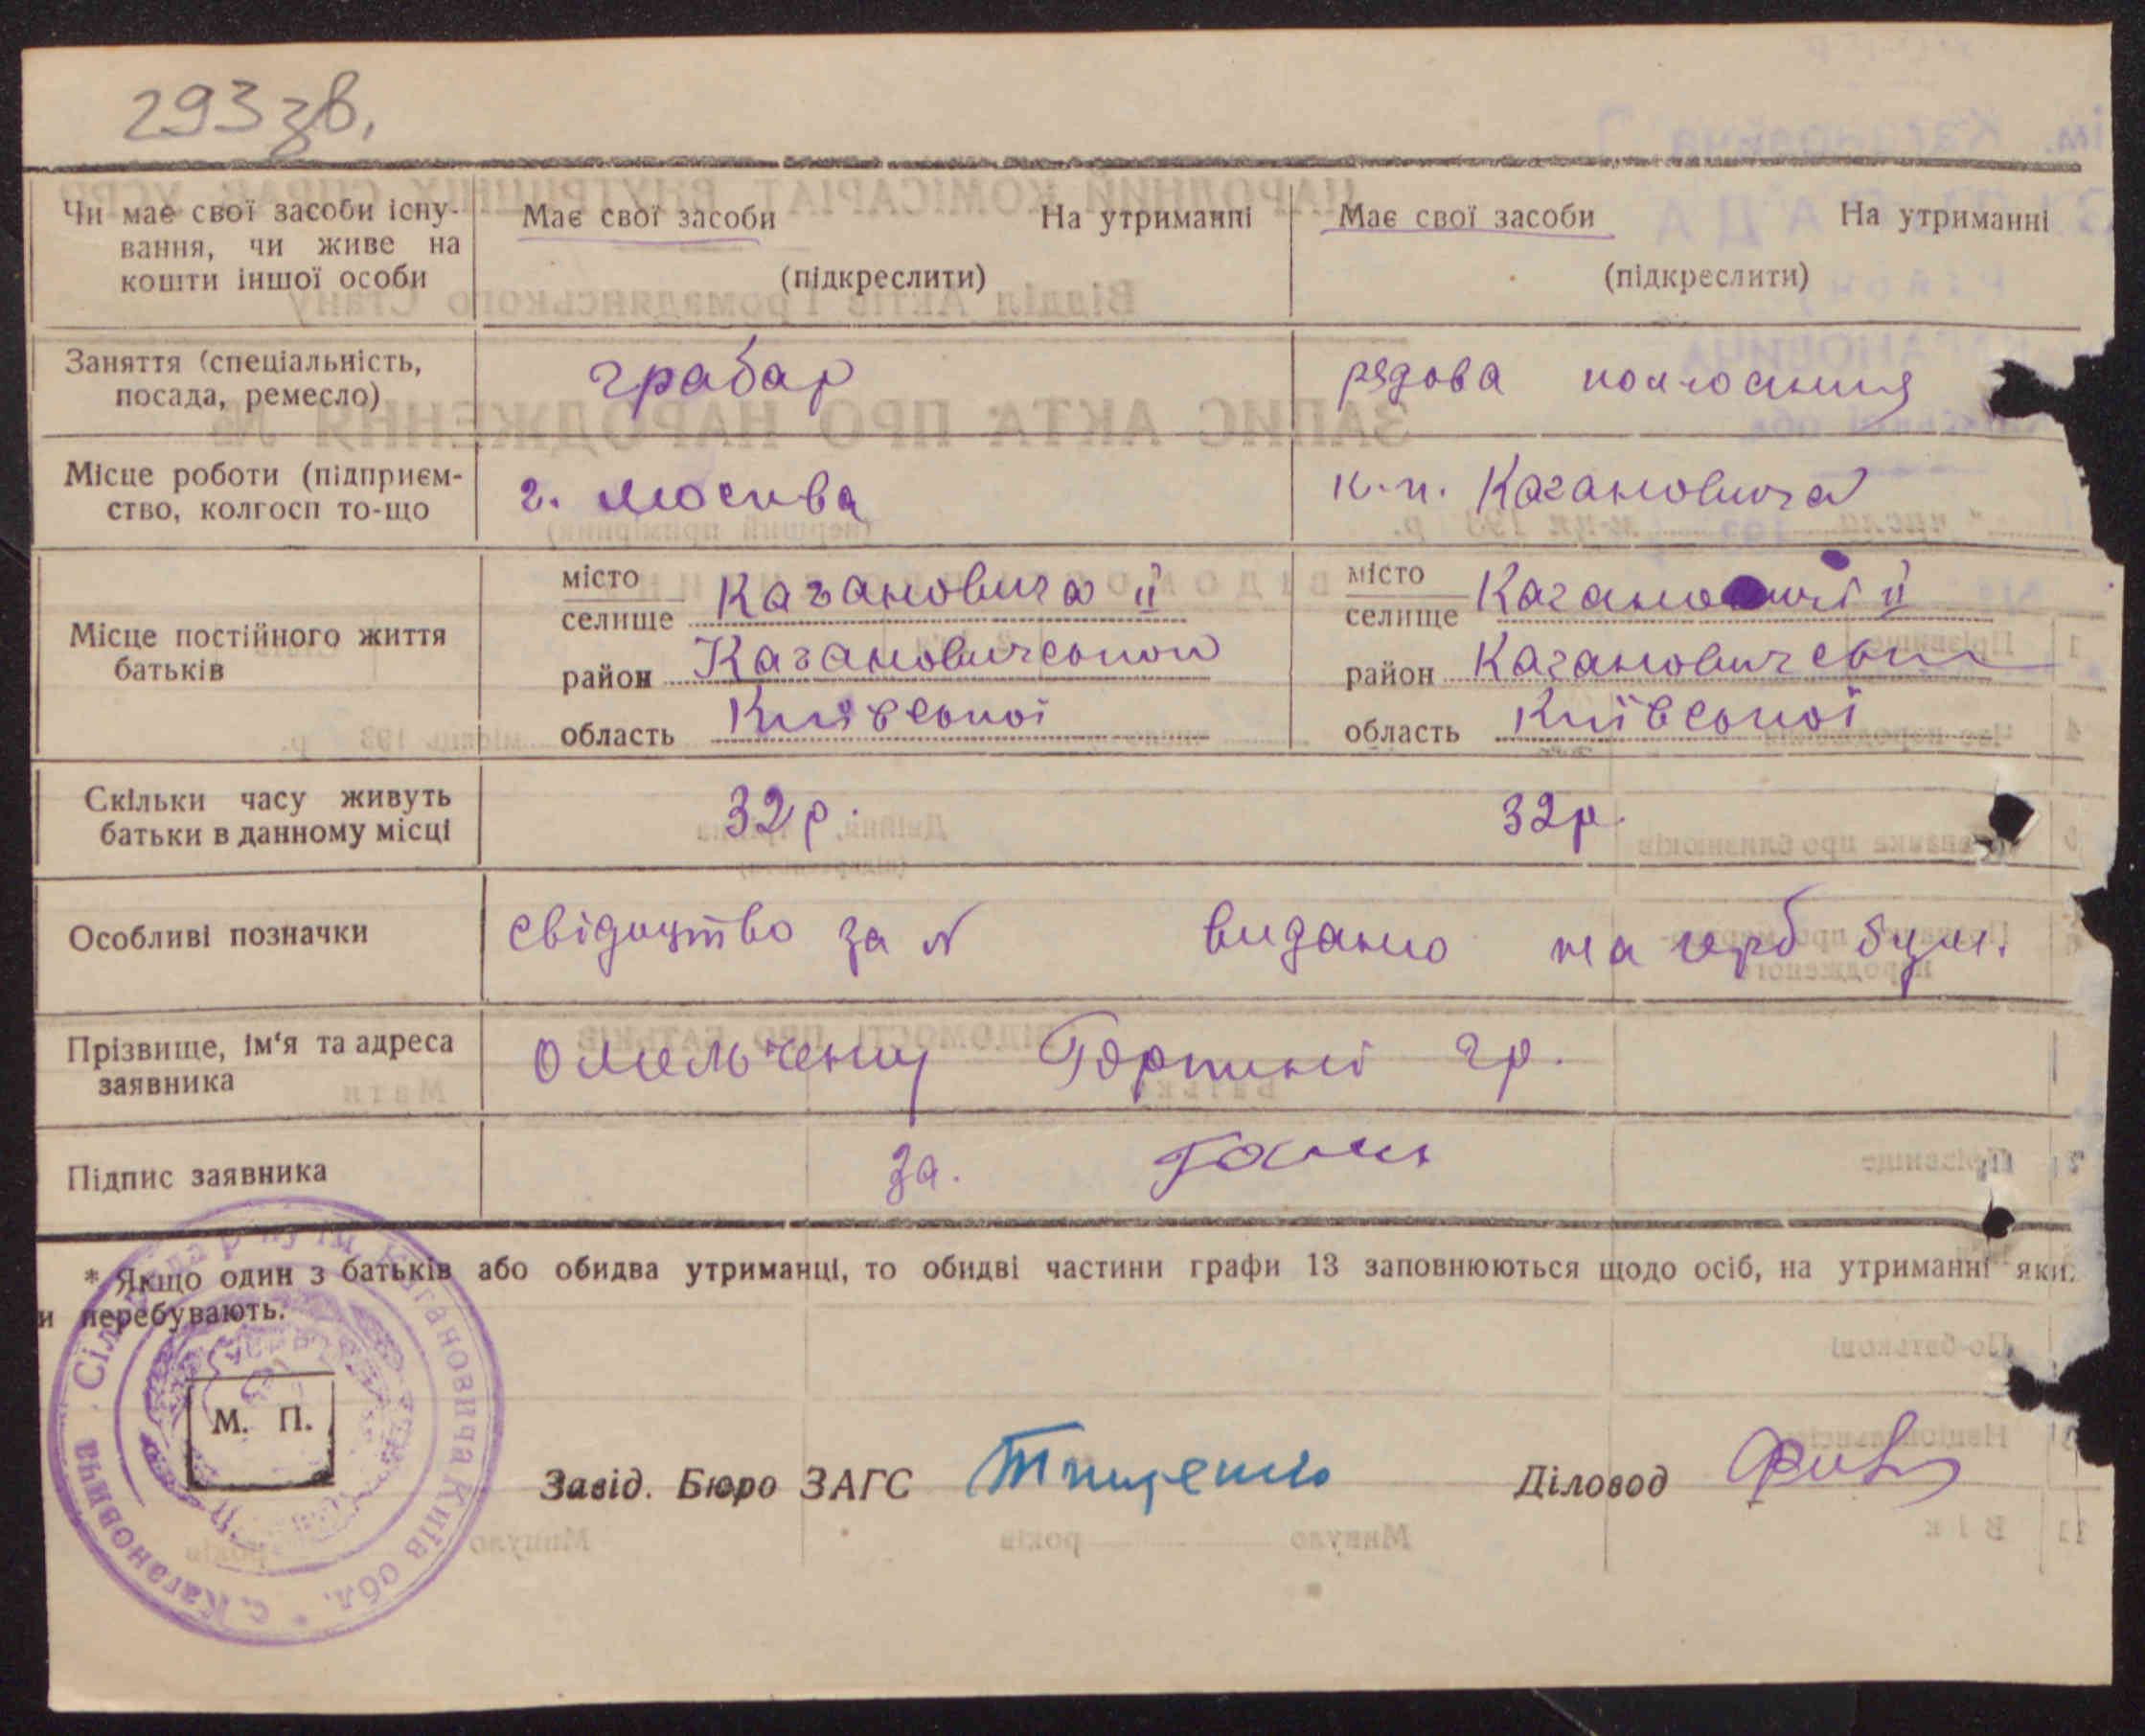 293 зв.
Чи має свої засоби існу- Має свої засоби На утриманні Має свої засоби На утриманні
вання, чи живе на
кошти іншої особи (підкреслити) (підкреслити)
Заняття (спеціальність,
посада, ремесло) грабар рядова
Місце роботи (підприєм-
ство, колгосп то-що г. Москва к-п. Кагановича
Місце постійного життя
батьків
місто
селище Кагановича ІІ
район
область Київської
місто
селище ІІ
район
область Київської
Скільки часу живуть
батьки в данному місці 32 р. 32 р.
Особливі позначки свідоцтво за N видано на герб бум.
Прізвище, ім'я та адреса
заявника Омельченку гр.
Підпис заявника за.
* Якщо один з батьків або обидва утриманці, то обидві частини графи 13 заповнюються щодо осіб, на утриманні яки
и перебувають.
М. П.
Завід. Бюро ЗАГС Тищенко Діловод
Кагановича Київ обл. * с. Кагановича